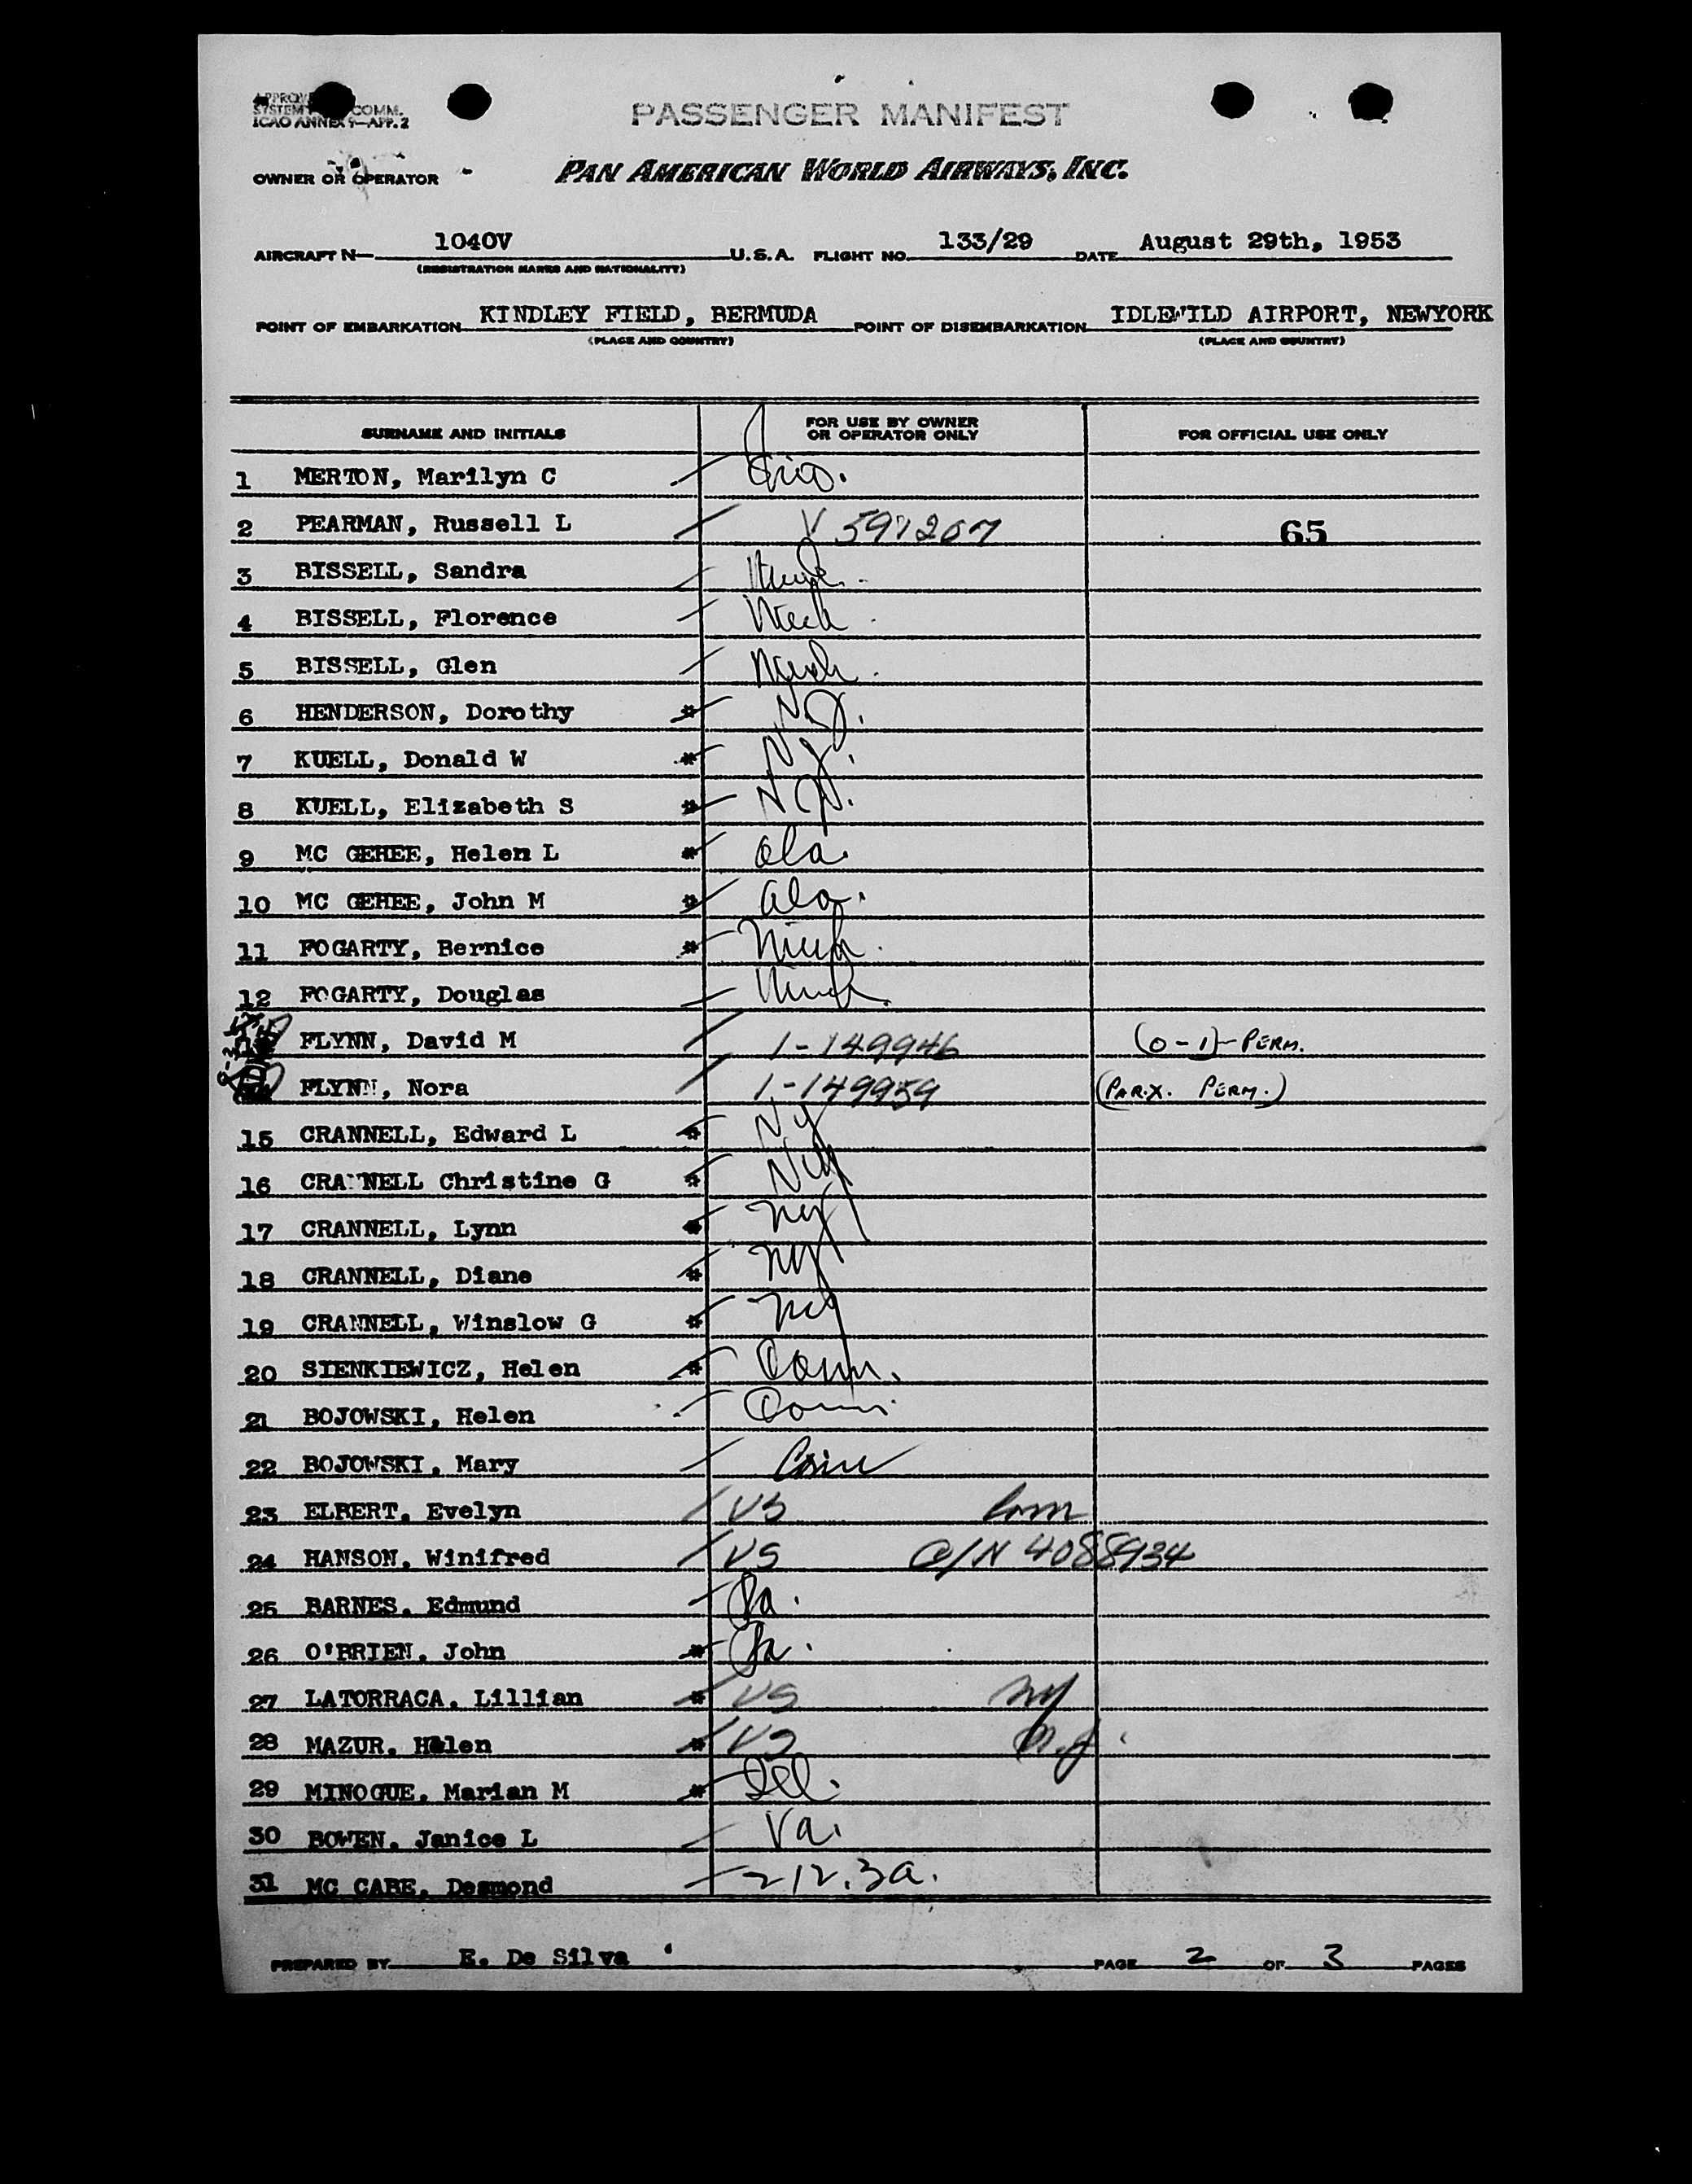 PASSENGER MANIFEST
APPROVE
SYSTEM COMM.
ICAO ANNEX 9—APP. 2
OWNER OR OPERATOR PAN AMERICAN WORLD AIRWAYS, INC.
AIRCRAFT N— 1040V U.S.A. FLIGHT NO. 133/29 DATE August 29th, 1953
(REGISTRATION MARKS AND NATIONALITY)
POINT OF EMBARKATION KINDLEY FIELD, BERMUDA POINT OF DISEMBARKATION IDLEWILD AIRPORT, NEWYORK
(PLACE AND COUNTRY) (PLACE AND COUNTRY)
SURNAME AND INITIALS FOR USE BY OWNER OR OPERATOR ONLY FOR OFFICIAL USE ONLY
1 MERTON, Marilyn C
2 PEARMAN, Russell L V 591207 65
3 BISSELL, Sandra
4 BISSELL, Florence
5 BISSELL, Glen
6 HENDERSON, Dorothy * N.J.
7 KUELL, Donald W * N.J.
8 KUELL, Elizabeth S * N.J.
9 MC GEHEE, Helen L * ala.
10 MC GEHEE, John M * ala.
11 FOGARTY, Bernice * Mich.
12 FOGARTY, Douglas Mich.
FLYNN, David M 1-149946 (0-1)-PERM.
FLYNN, Nora 1-149959 (PAR.X. PERM.)
15 CRANNELL, Edward L * Ny
16 CRANNELL Christine G * Ny
17 CRANNELL, Lynn * ny
18 CRANNELL, Diane * ny
19 CRANNELL, Winslow G * ny
20 SIENKIEWICZ, Helen * Conn.
21 BOJOWSKI, Helen Conn.
22 BOJOWSKI, Mary Conn
23 ELBERT, Evelyn US Conn
24 HANSON, Winifred US C/N 4088934
25 BARNES, Edmund Pa.
26 O'BRIEN, John * Pa.
27 LATORRACA, Lillian * US ny
28 MAZUR, Helen * US n.j.
29 MINOGUE, Marian M * Ill.
30 BOWEN, Janice L Va.
31 MC CABE, Desmond 212.3a.
PREPARED BY E. De Silva PAGE 2 OF 3 PAGES